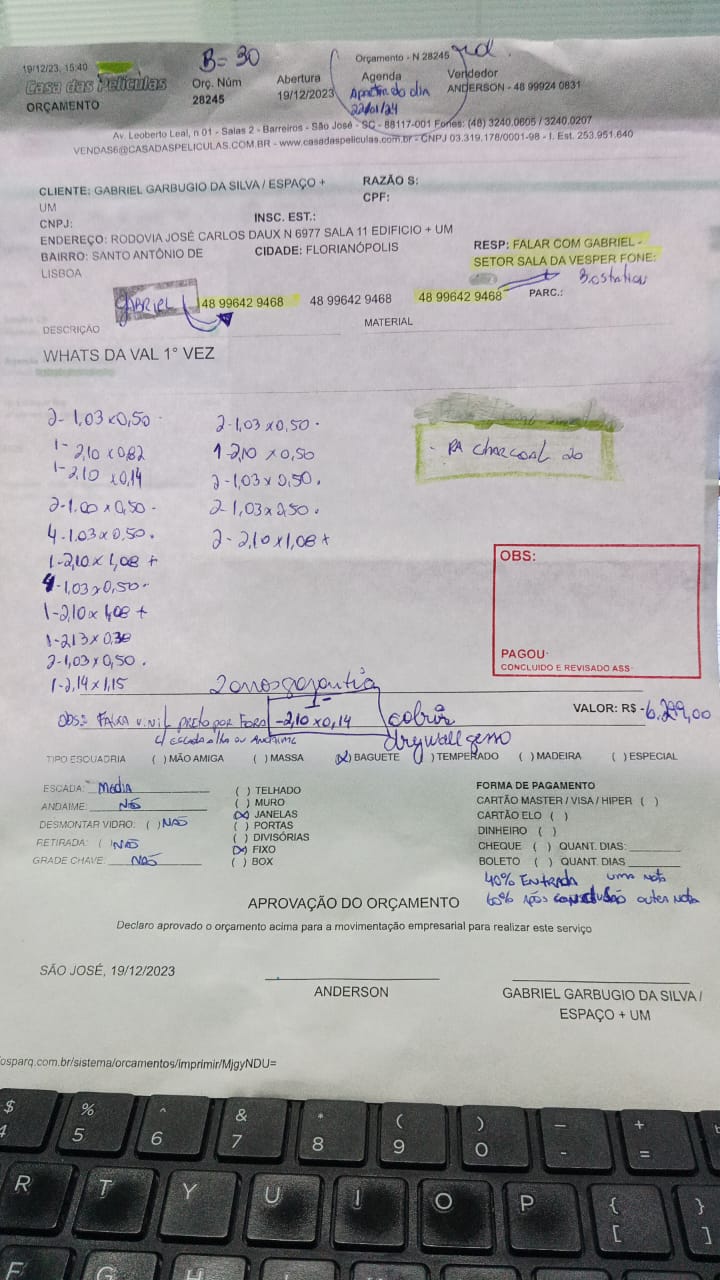 19/12/23, 15:40
B= 30
Orçamento - N 28245
Casa das Películas
ORÇAMENTO
Orç. Núm
28245
Abertura
19/12/2023
Agenda
Apartir do dia
22/01/24
Vendedor
ANDERSON - 48 99924 0831
Av. Leoberto Leal, n 01 - Salas 2 - Barreiros - São José - SC - 88117-001 Fones: (48) 3240.0605 / 3240.0207
VENDAS6@CASADASPELICULAS.COM.BR - www.casadaspeliculas.com.br - CNPJ 03.319.178/0001-98 - I. Est. 253.951.640
CLIENTE: GABRIEL GARBUGIO DA SILVA / ESPAÇO +
UM
RAZÃO S:
CPF:
CNPJ:
INSC. EST.:
ENDEREÇO: RODOVIA JOSÉ CARLOS DAUX N 6977 SALA 11 EDIFICIO + UM
BAIRRO: SANTO ANTÔNIO DE
LISBOA
CIDADE: FLORIANÓPOLIS
RESP: FALAR COM GABRIEL -
SETOR SALA DA VESPER FONE:
Biostation
GABRIEL
48 99642 9468 48 99642 9468 48 99642 9468
PARC.:
DESCRIÇÃO
MATERIAL
WHATS DA VAL 1° VEZ
2- 1,03 x 0,50 -
1- 2,10 x 0,82
1- 2,10 x 0,14
2- 1.00 x 0,50 -
4- 1.03 x 0,50 .
1- 2,10 x 1,08 +
4- 1,03 x 0,50 -
1- 2,10 x 1,08 +
1- 2,13 x 0,38
2- 1,03 x 0,50 .
1- 2,14 x 1,15
2- 1,03 x 0,50 .
1- 2,10 x 0,50
2- 1,03 x 0,50 .
2- 1,03 x 0,50 .
2- 2,10 x 1,08 +
- PA Charcoal 20
OBS:
PAGOU-
CONCLUIDO E REVISADO ASS-
2 anos garantia
VALOR: R$ -6.299,00
Obs: FAIXA vinil preto por FORA
1-
-2,10 x 0,14
cobrir
drywall gesso
c/ escada alta ou Andaime
TIPO ESQUADRIA ( ) MÃO AMIGA ( ) MASSA (X) BAGUETE ( ) TEMPERADO ( ) MADEIRA ( ) ESPECIAL
ESCADA: Media
ANDAIME: NÃO
DESMONTAR VIDRO: ( ) NÃO
RETIRADA: ( ) NÃO
GRADE CHAVE: NÃO
( ) TELHADO
( ) MURO
(X) JANELAS
( ) PORTAS
( ) DIVISÓRIAS
(X) FIXO
( ) BOX
FORMA DE PAGAMENTO
CARTÃO MASTER / VISA / HIPER ( )
CARTÃO ELO ( )
DINHEIRO ( )
CHEQUE ( ) QUANT. DIAS:
BOLETO ( ) QUANT. DIAS
40% ENTRADA uma nota
60% Após conclusão outra Nota
APROVAÇÃO DO ORÇAMENTO
Declaro aprovado o orçamento acima para a movimentação empresarial para realizar este serviço
SÃO JOSÉ, 19/12/2023
ANDERSON
GABRIEL GARBUGIO DA SILVA /
ESPAÇO + UM
osparq.com.br/sistema/orcamentos/imprimir/MjgyNDU=
$ % ^ & * ( ) _ +
4 5 6 7 8 9 0 - =
R T Y U I O P { }
[ ]
F G H J K L